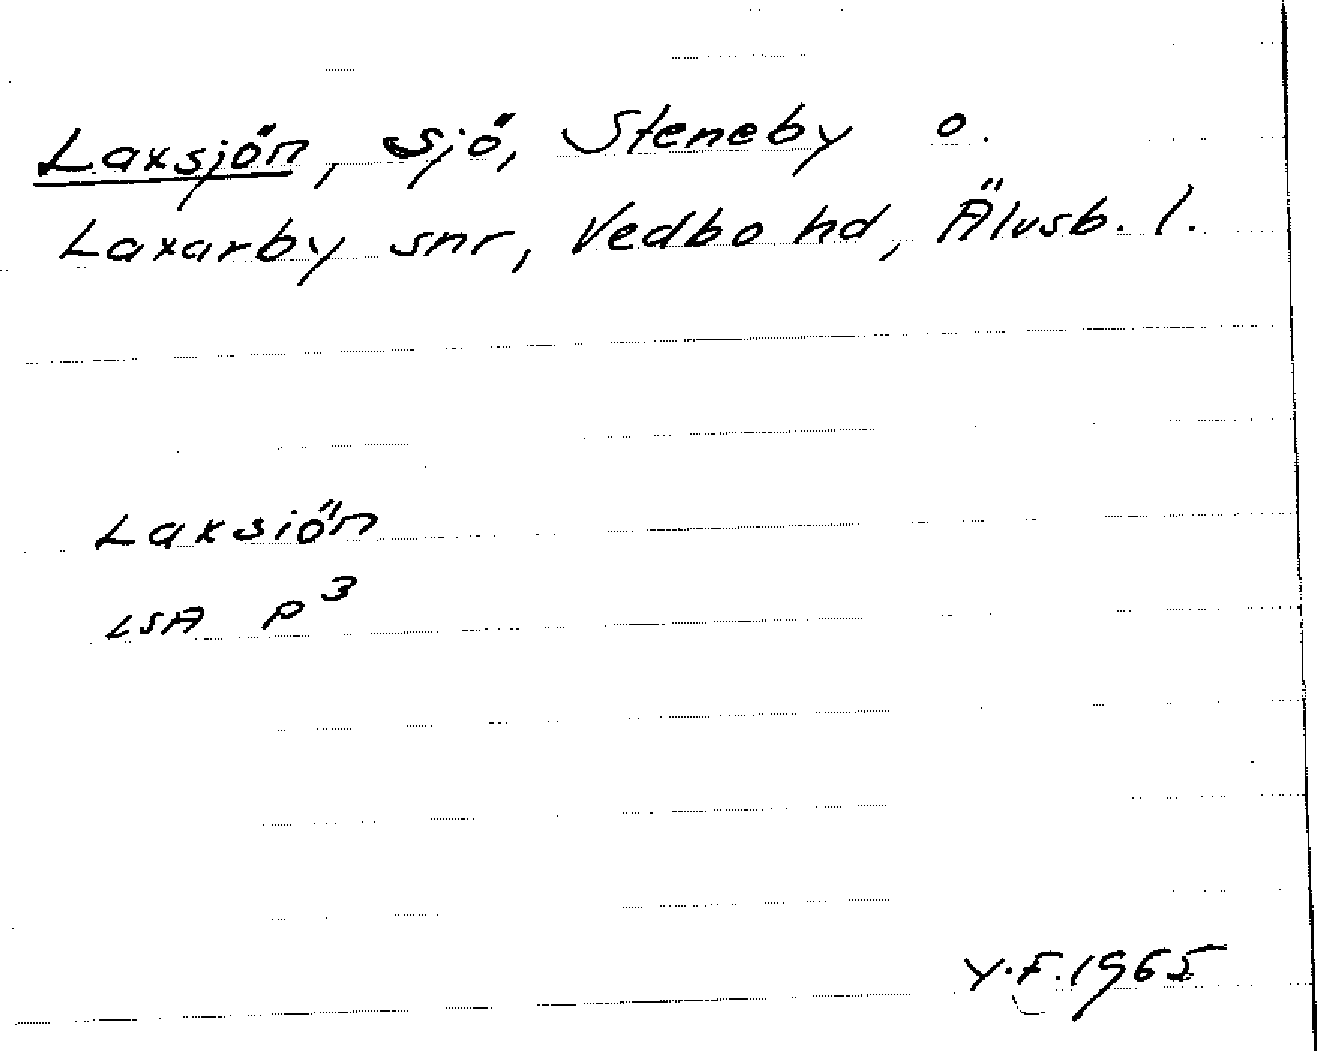 Laxsjön, sjö, Steneby o.
Laxarby snr, Vedbo hd, Älvsb. l.
Laxsiön
LSA P3
Y.F. 1965